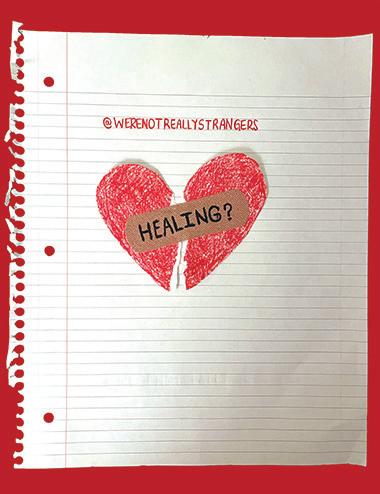 @WERENOTREALLYSTRANGERS
HEALING?